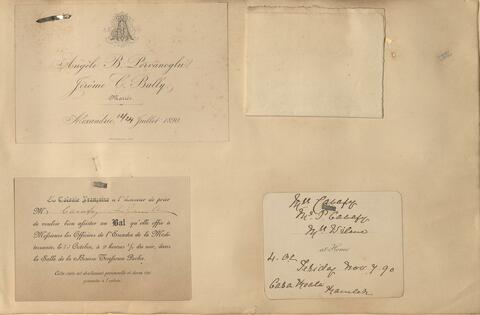 Angèle B. Pervanoglu
Jérôme C. Bully
Mariés
Alexandrie, 12/24 Juillet 1890
La Colonie Française a l'honneur de prier
M
de vouloir bien assister au Bal qu'elle offre à
Messieurs les Officiers de l'Escadre de la Médi-
terranée, le Octobre, à 9 heures ½ du soir, dans
la Salle de la Bourse Toussoun Pacha.
Cette carte est strictement personnelle et devra être
présentée à l'entrée.
Mrs Cavafy
Mr P Cavafy
Mrs
at Home
4. O
Friday Nov 7 90
Ramleh